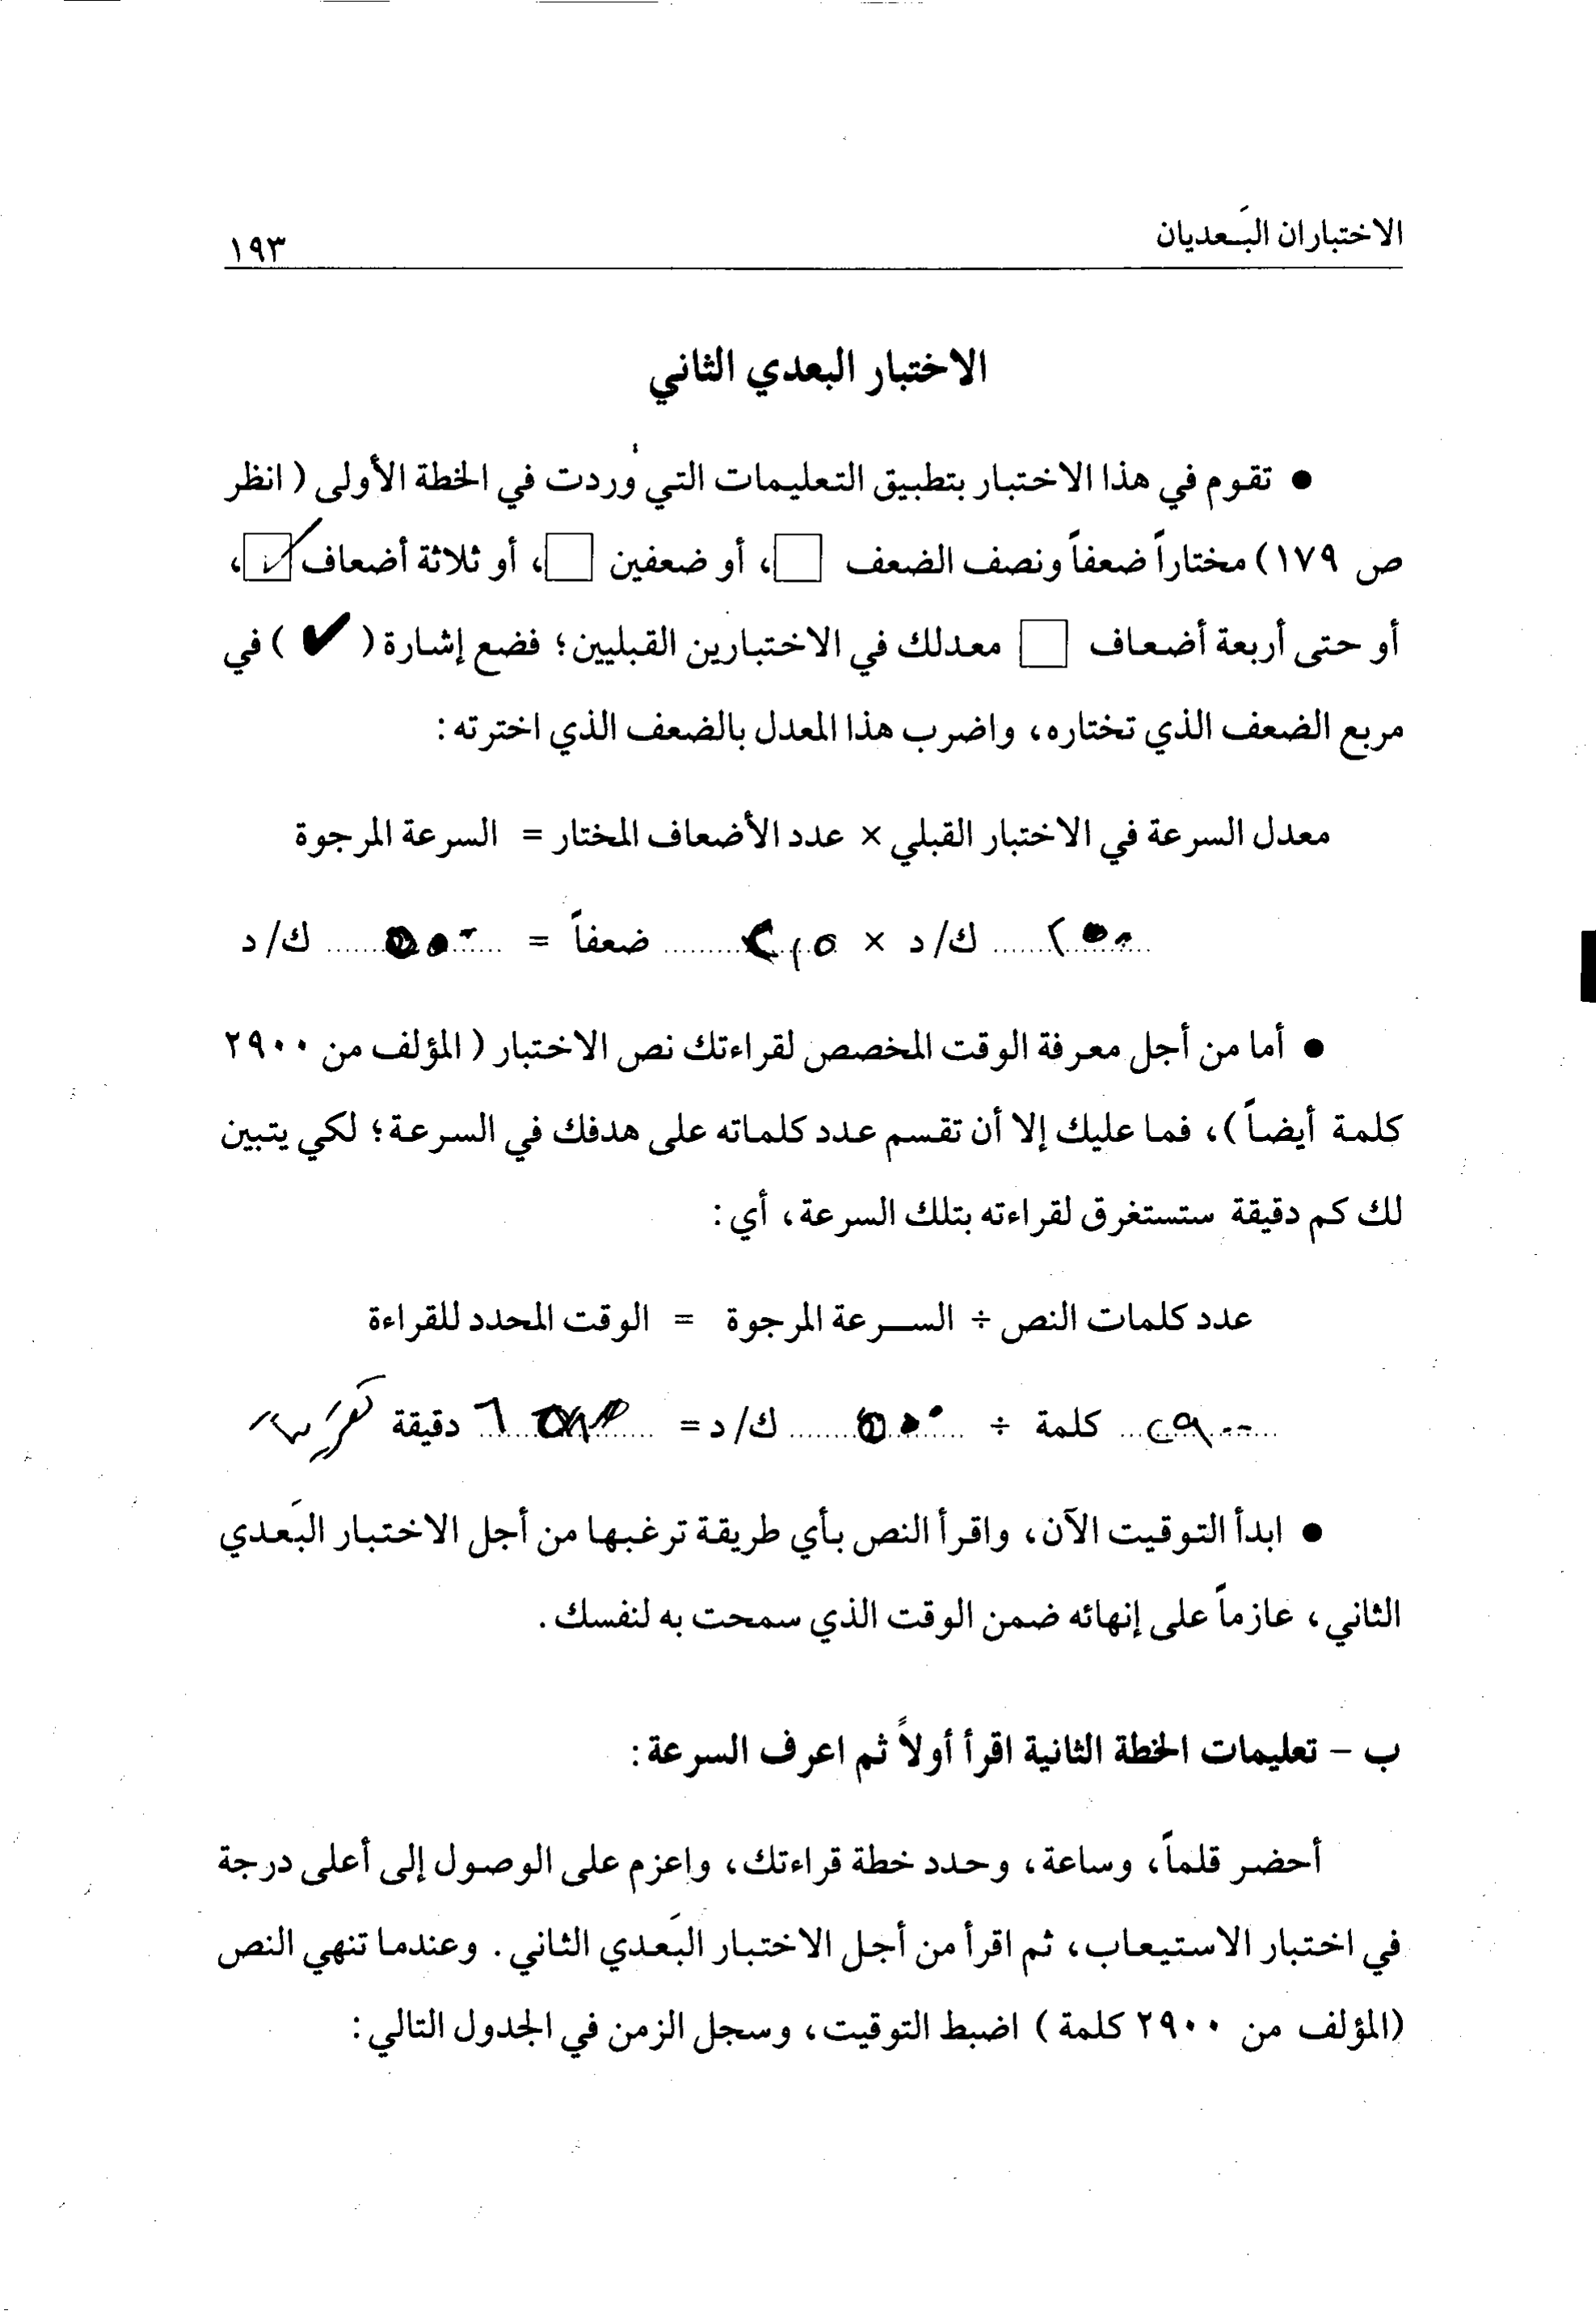 الاختباران البَعديان
١٩٣
الاختبار البعدي الثاني
● تقوم في هذا الاختبار بتطبيق التعليمات التي وردت في الخطة الأولى ( انظر
ص ١٧٩) مختاراً ضعفاً ونصف الضعف ☐، أو ضعفين ☐، أو ثلاثة أضعاف ☑،
أو حتى أربعة أضعاف ☐ معدلك في الاختبارين القبليين؛ فضع إشارة ( ✔ ) في
مربع الضعف الذي تختاره، واضرب هذا المعدل بالضعف الذي اخترته:
معدل السرعة في الاختبار القبلي × عدد الأضعاف المختار = السرعة المرجوة
ك/د × ضعفاً = ك/د
● أما من أجل معرفة الوقت المخصص لقراءتك نص الاختبار ( المؤلف من ٢٩٠٠
كلمة أيضاً )، فما عليك إلا أن تقسم عدد كلماته على هدفك في السرعة؛ لكي يتبين
لك كم دقيقة ستستغرق لقراءته بتلك السرعة، أي:
عدد كلمات النص ÷ السرعة المرجوة = الوقت المحدد للقراءة
٢٩٠٠ كلمة ÷ ك/د = دقيقة
● ابدأ التوقيت الآن، واقرأ النص بأي طريقة ترغبها من أجل الاختبار البَعدي
الثاني، عازماً على إنهائه ضمن الوقت الذي سمحت به لنفسك.
ب – تعليمات الخطة الثانية اقرأ أولاً ثم اعرف السرعة:
أحضر قلماً، وساعة، وحدد خطة قراءتك، واعزم على الوصول إلى أعلى درجة
في اختبار الاستيعاب، ثم اقرأ من أجل الاختبار البَعدي الثاني. وعندما تنهي النص
(المؤلف من ٢٩٠٠ كلمة ) اضبط التوقيت، وسجل الزمن في الجدول التالي: